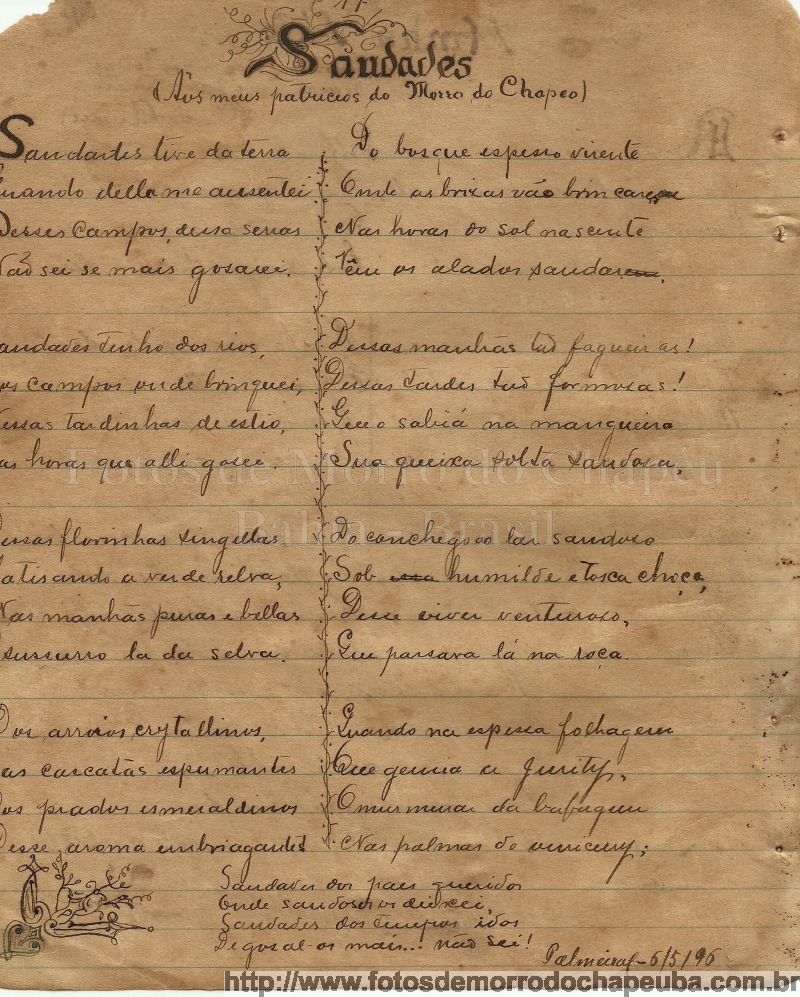 17
Saudades
(Aos meus patricios do Morro do Chapeo)
Saudades tive da terra
Quando della me ausentei
Desses campos, dessa serras
Não sei se mais gosarei.
audades tenho dos rios,
os campos onde brinquei,
essas tardinhas de estio,
as horas que alli gosei.
essas florinhas singellas
atisando a verde relva,
Nas manhãs puras e bellas
sussurro la da selva.
Dos arroios crytallinos,
as cascatas espumantes
os prados esmeraldinos
Desse aroma embriagantes
Do bosque espesso virente
Onde as brizas vão brincar
Nas horas do sol nascente
Vêm os alados saudar
Dessas manhãs tão fagueiras!
Dessas tardes tão formosas!
Que o sabiá na mangueira
Sua queixa solta saudosa,
Do conchego do lar saudoso
Sob humilde e tosca choça,
Desse viver venturoso,
Que passava lá na roça.
Quando na espessa folhagem
Que gemia a jurity,
O murmurar da bafagem
Nas palmas do
Saudades dos paes queridos
Onde saudosos os deixei,
Saudades dos tempos idos
De gosal-os mais... não sei!
Palmeiras-6/5/96
Fotos de Morro do Chapéu
Bahia - Brasil
http://www.fotosdemorrodochapeuba.com.br